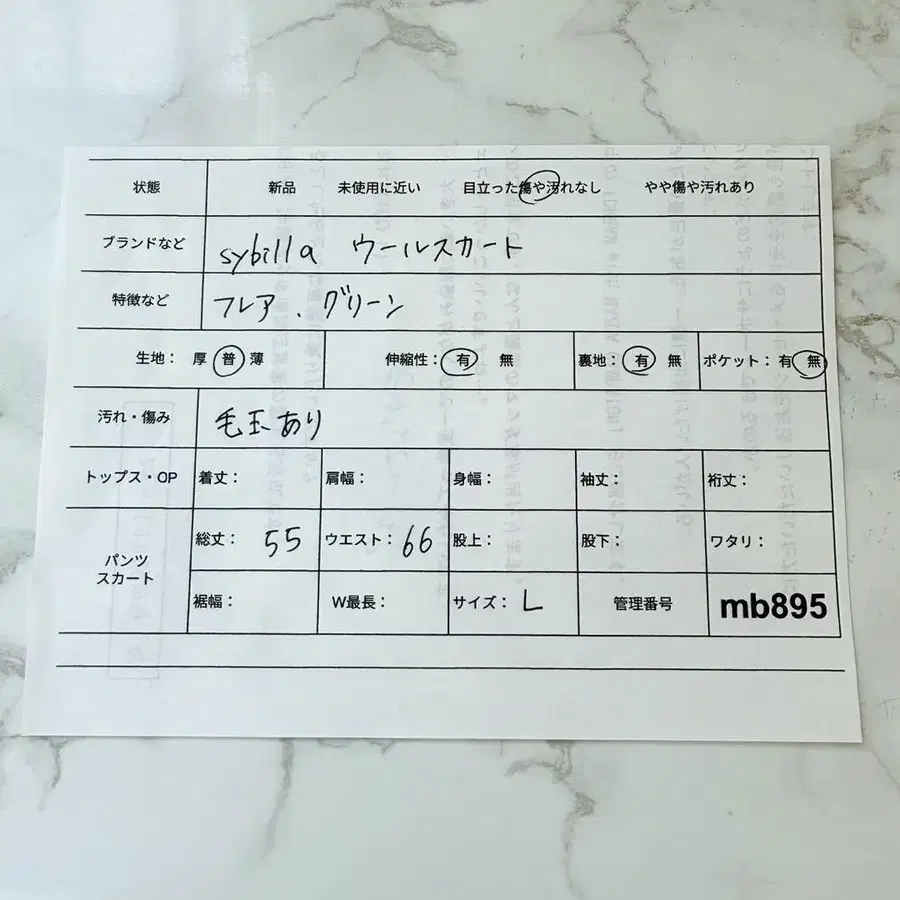 状態 新品 未使用に近い 目立った傷や汚れなし やや傷や汚れあり
ブランドなど sybilla ウールスカート
特徴など フレア、グリーン
生地： 厚 普 薄 伸縮性： 有 無 裏地： 有 無 ポケット： 有 無
汚れ・傷み 毛玉あり
トップス・OP 着丈： 肩幅： 身幅： 袖丈： 裄丈：
パンツ
スカート
総丈： 55 ウエスト： 66 股上： 股下： ワタリ：
裾幅： W最長： サイズ： L 管理番号 mb895